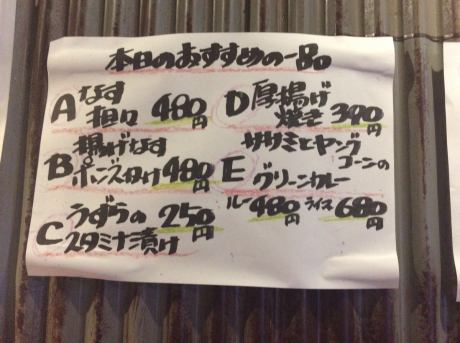 本日のおすすめの一品
A なす
担々 480円
B 揚げなす
ポン酢がけ 480円
C うずらの 250円
スタミナ漬け
D 厚揚げ
焼き 390円
E ササミとヤング
コーンの
グリーンカレー
ルー 480円 ライス 680円